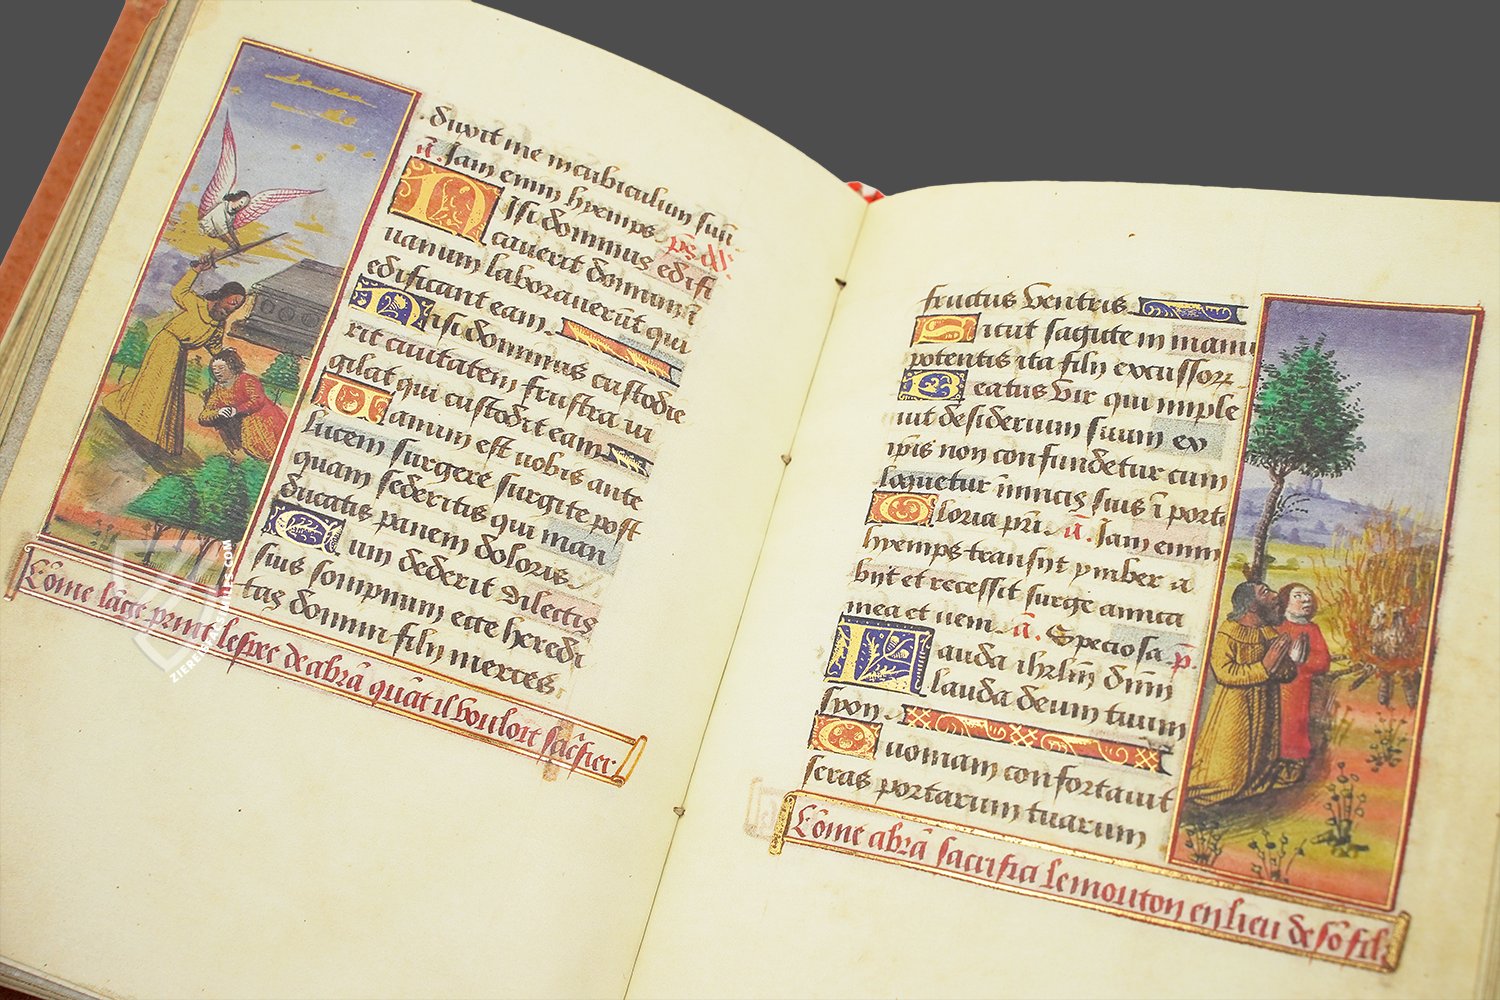 duxit me in cubiculum suū
a̅. Jam enim hyemps. ps̄ dd.
Nisi dominus edifi
cauerit domum ī
uanum laborauerūt qui
edificant eam.
Nisi dominus custodie
rit ciuitatem frustra ui
gilat qui custodit eam
Vanum est uobis ante
lucem surgere surgite post
quam sederitis qui man
ducatis panem doloris.
Cum dederit dilectis
suis sompnum ecce heredi
tas domini filij merces.
Cōme lāge print lespee de abrā quāt il vouloit sacrifier
fructus ventris
Sicut sagitte in manu
potentis ita filij excussorꝝ
Beatus vir qui imple
uit desiderium suum ex
ipis non confundetur cum
loquetur inimicis suis ī porta
Gloria pri. a̅. Jam enim
hyemps transijt ymber a
bijt et recessit surge amica
mea et ueni. a̅. Speciosa. p̄.
Lauda ihrlm̄ dūm
lauda deum tuum
syon
Quoniam confortauit
seras portarum tuarum
Cōme abrā sacrifia le mouton en lieu de sō filz
ZIEREIS FACSIMILES.COM